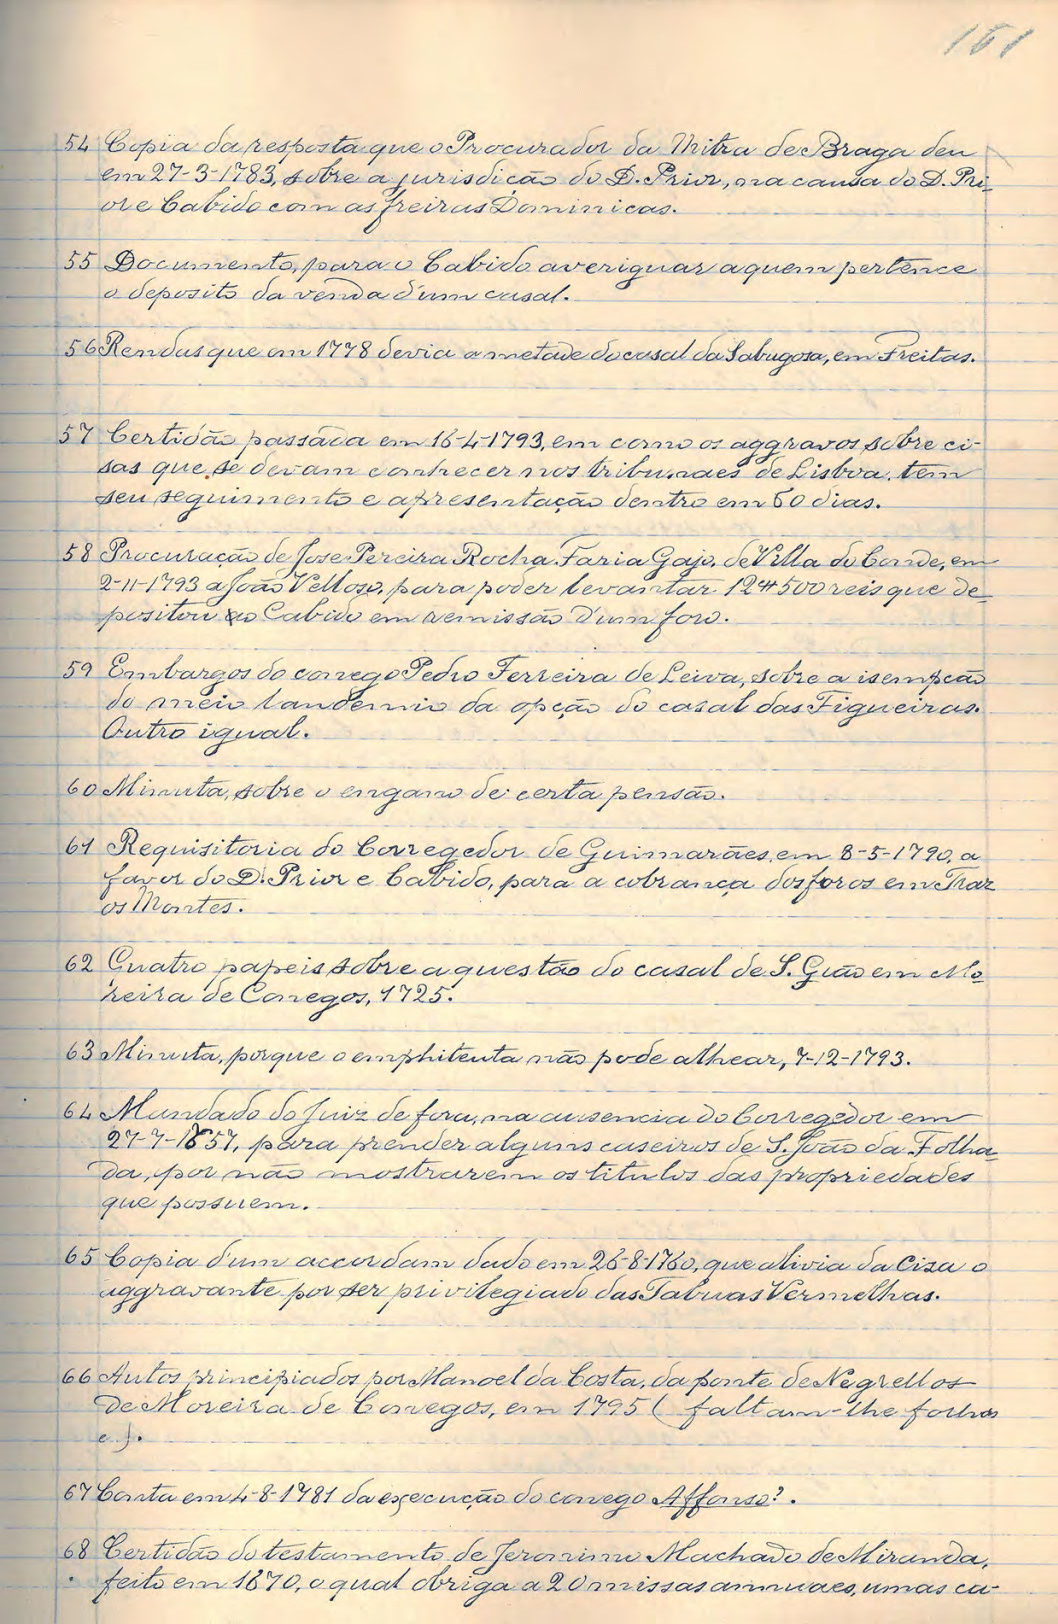 161
54 Copia da resposta que o Procurador da Mitra de Braga deu
em 27-3-1783, sobre a jurisdicão do D. Prior, na causa do D. Pri-
or e Cabido com as freiras Dominicas.
55 Documento, para o Cabido averiguar a quem pertence
o deposito da venda d'um casal.
56 Rendas que em 1778 devia a metade do casal da Sabugosa, em Freitas.
57 Certidão passada em 16-4-1793, em como os aggravos sobre ci-
sas que se devam conhecer nos tribunaes de Lisboa, tem
seu seguimento e apresentação dentro em 60 dias.
58 Procuração de Jose Pereira Rocha Faria Gajo, de Villa do Conde, em
2-11-1793 a João Velloso, para poder levantar 12#500 reis que de-
positou ao Cabido em remissão d'um foro.
59 Embargos do conego Pedro Ferreira de Leiva, sobre a isempcão
do meio laudemio da opção do casal das Figueiras.
Outro igual.
60 Minuta, sobre o engano de certa pensão.
61 Requisitoria do Corregedor de Guimarães, em 8-5-1790, a
favor do D. Prior e Cabido, para a cobrança dos foros em Traz
os Montes.
62 Quatro papeis sobre a questão do casal de S. Gião em Mo-
reira de Conegos, 1725.
63 Minuta, porque o emphiteuta não pode alhear, 7-12-1793.
64 Mandado do Juiz de fora, na ausencia do Corregedor em
27-7-1657, para prender alguns caseiros de S. João da Folha-
da, por não mostrarem os titulos das propriedades
que possuem.
65 Copia d'um accordam dado em 26-8-1760, que alivia da Cisa o
aggravante por ser privilegiado das Tabuas Vermelhas.
66 Autos principiados por Manoel da Costa, da ponte de Negrellos
de Moreira de Conegos, em 1795 ( faltam-lhe folhas
e ).
67 Conta em 4-8-1781 da execução do conego Affonso? .
68 Certidão do testamento de Jeronimo Machado de Miranda,
feito em 1670, o qual obriga a 20 missas annuaes, umas ca-